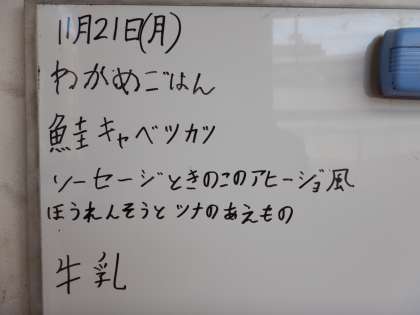 11月21日(月)
わがめごはん
鮭キャベツカツ
ソーセージときのこのアヒージョ風
ほうれんそうとツナのあえもの
牛乳